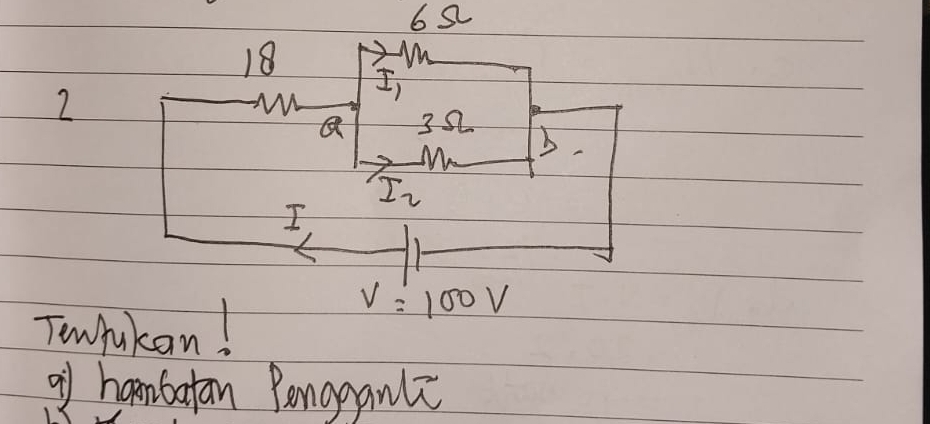 6 Ω
18
I₁
2
a
3 Ω
b
I₂
I
V = 100 V
Tentukan!
a) hambatan Pengganti